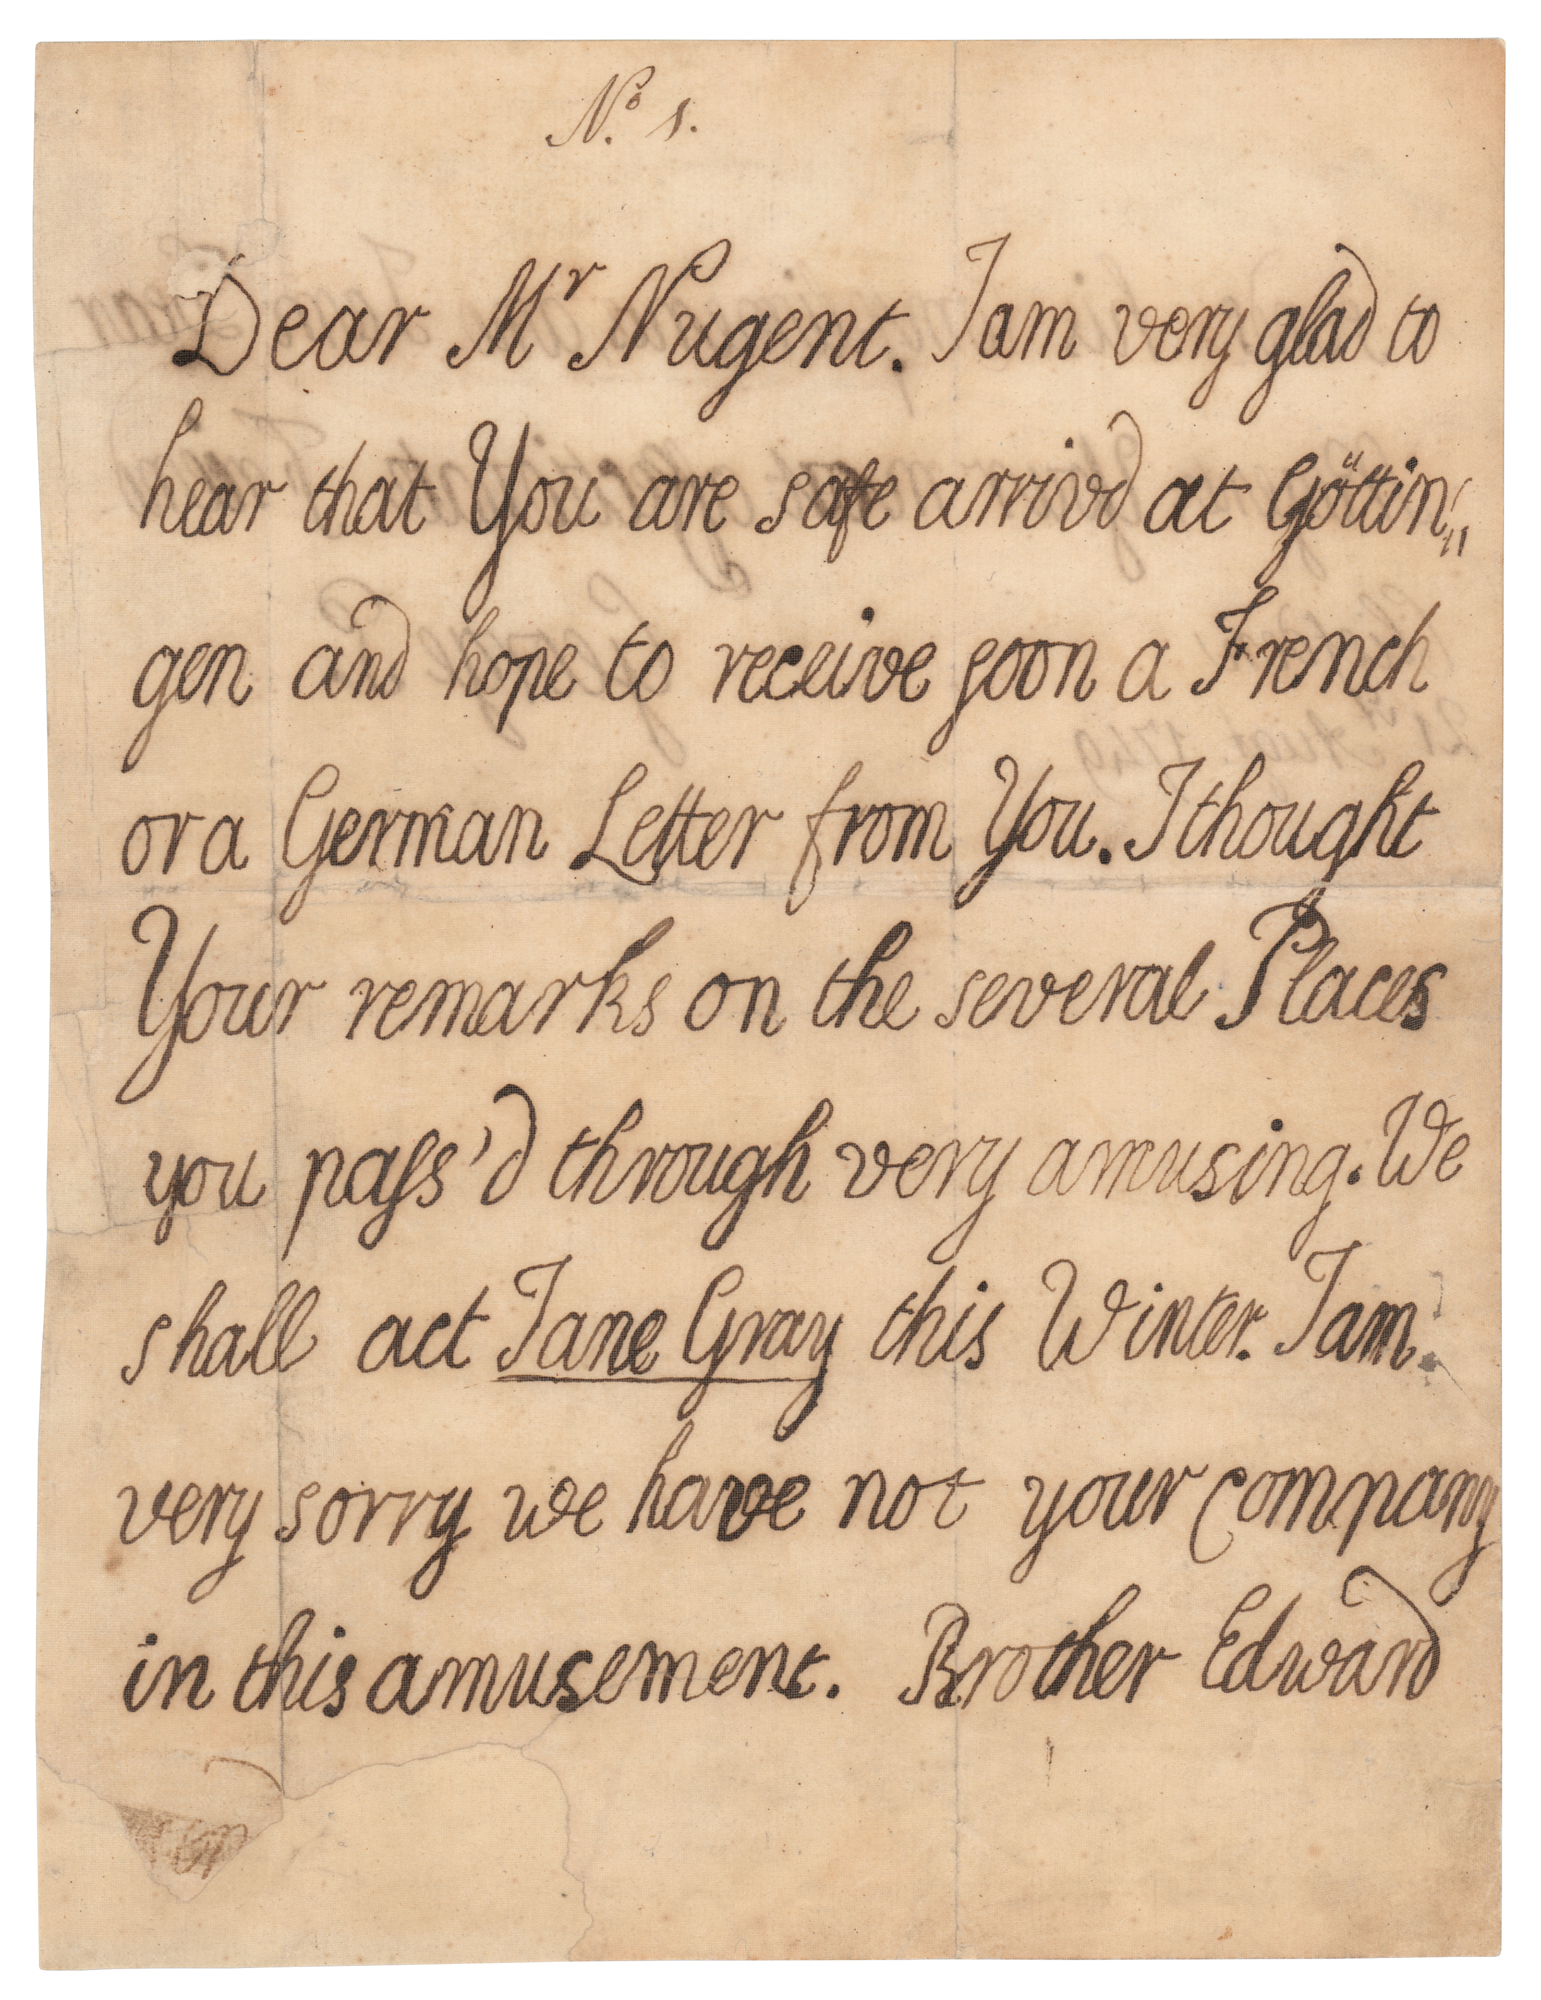 No. 1.
Dear Mr Nugent. I am very glad to
hear that You are safe arrivd at Göttin„
gen and hope to receive soon a French
or a German Letter from You. I thought
Your remarks on the several Places
you paſs'd through very amusing. We
shall act Jane Gray this Winter. I am
very sorry we have not your company
in this amusement. Brother Edward